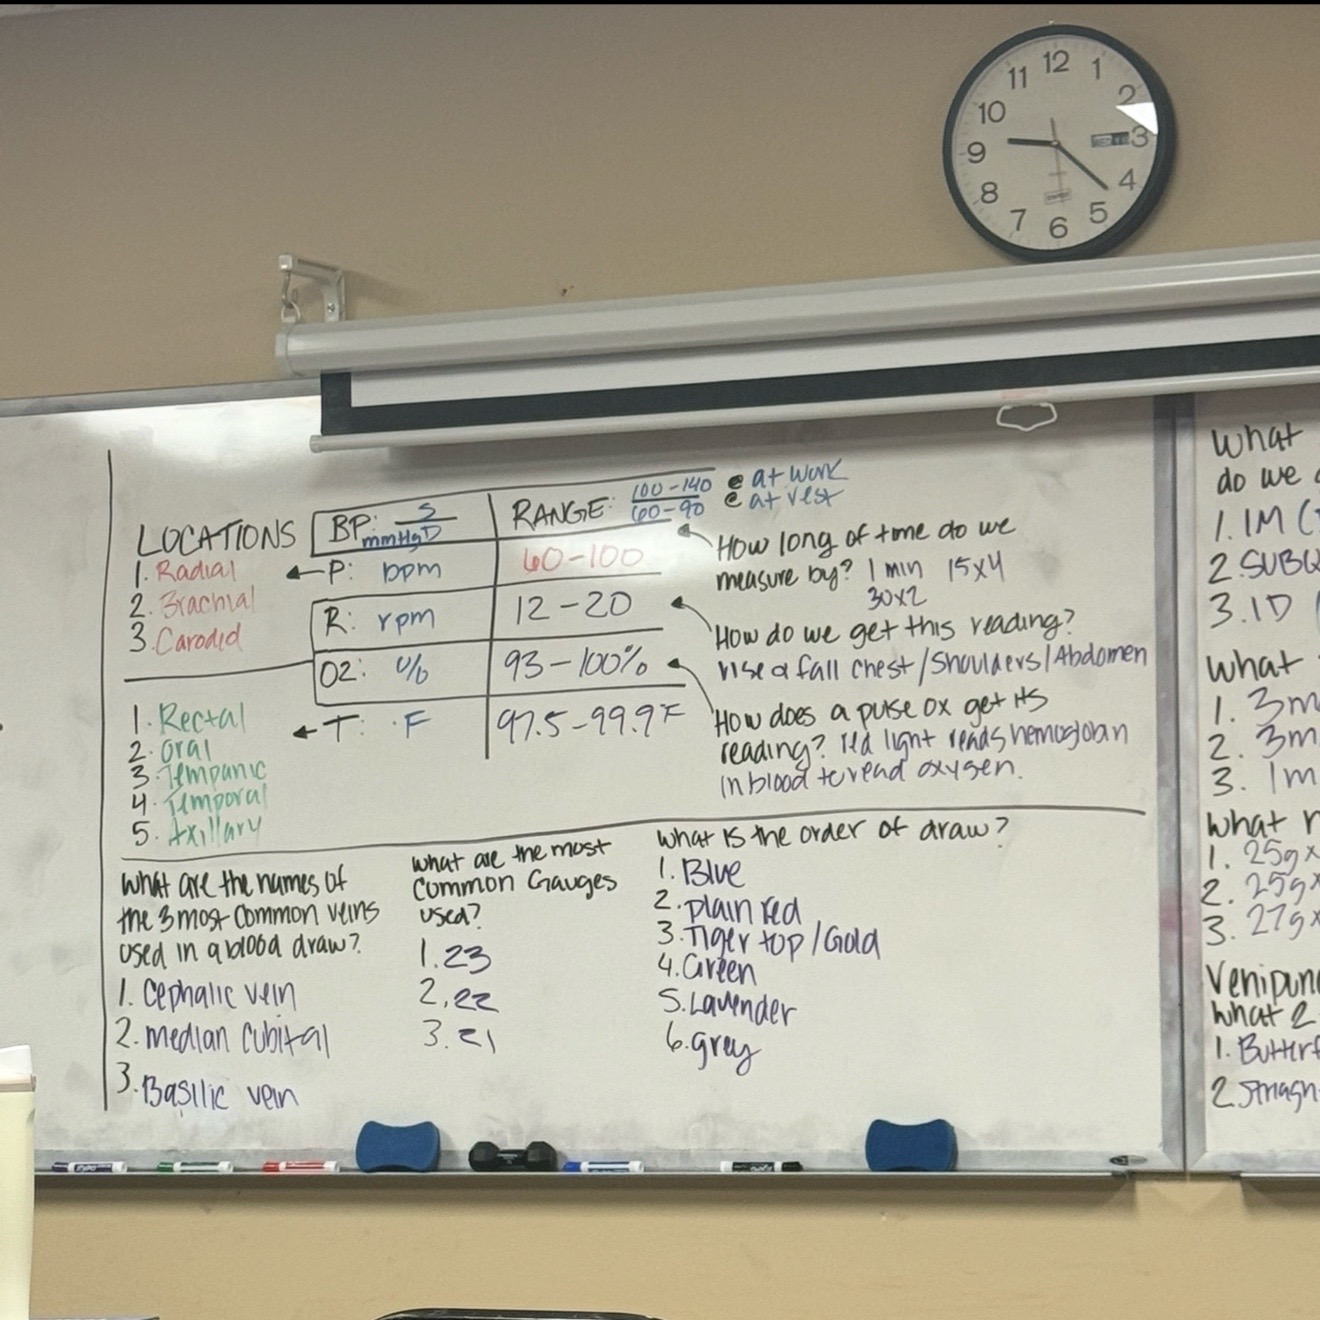 12
11 1
10 2
9 3
8 4
7 5
6
LOCATIONS
1. Radial
2. Brachial
3. Carodid
1. Rectal
2. Oral
3. Tempanic
4. Temporal
5. Axillary
BP: S
mmHg D
← P: bpm
R: rpm
O2: %
← T: °F
RANGE: 100-140 @ at work
60-90 @ at rest
60-100
12-20
93-100%
97.5-99.9 F
How long of time do we
measure by? 1 min 15x4
30x2
How do we get this reading?
rise & fall chest/Shoulders/Abdomen
How does a pulse ox get its
reading? red light reads hemogloban
in blood to read oxygen.
What are the names of
the 3 most common veins
used in a blood draw?
1. Cephalic vein
2. median Cubital
3. Basilic vein
What are the most
Common Gauges
used?
1. 23
2. 22
3. 21
What is the order of draw?
1. Blue
2. plain red
3. Tiger top/Gold
4. Green
5. Lavender
6. grey
What
do we
1. IM (
2. SUBQ
3. ID
What
1. 3m
2. 3m
3. 1m
What n
1. 25g x
2. 25g x
3. 27g x
Venipun
What 2
1. Butterf
2.
EXPO